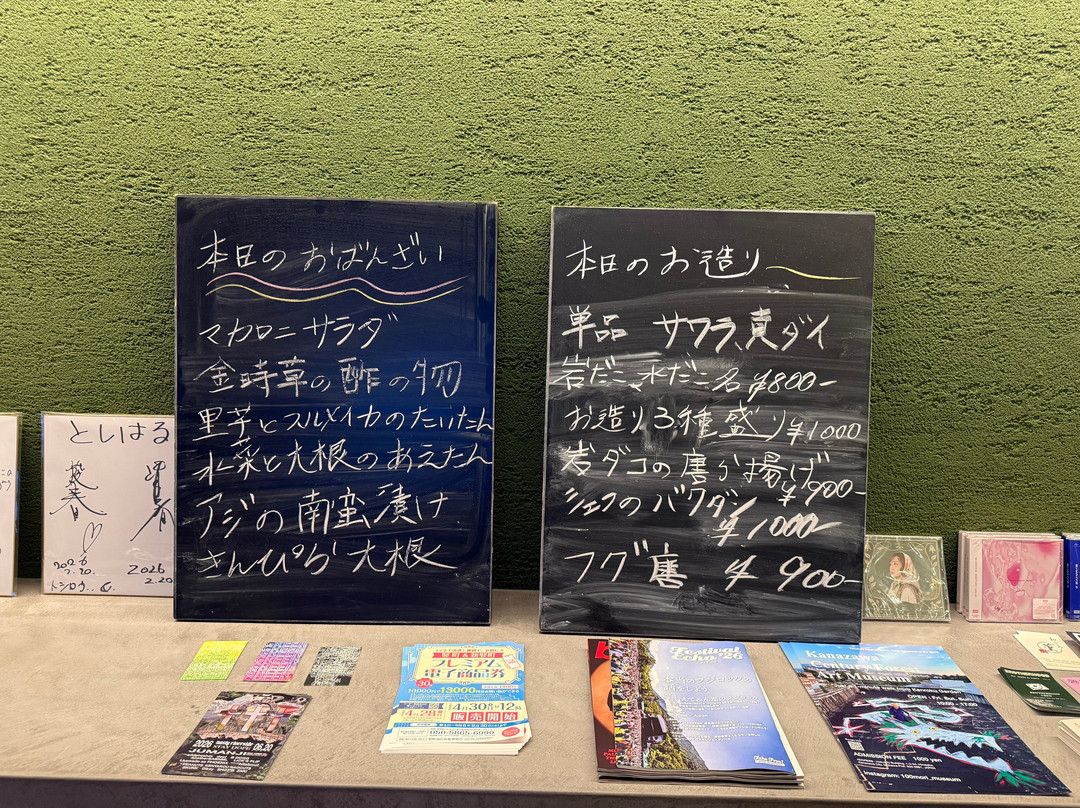 本日のおばんざい
マカロニサラダ
金時草の酢の物
里芋とスルメイカのたいたん
水菜と大根のあえたん
アジの南蛮漬け
きんぴら大根
本日のお造り
単品 サワラ、真ダイ
岩だこ、水だこ 各¥800-
お造り3種盛り¥1000
岩ダコの唐揚げ
¥900-
シェフのバクダン
¥1000-
フグ唐 ¥900-
としはる
2026
2.20
2026
2.20.
竪町&新竪町
プレミアム
電子商品券
10000円で13000円分
4月28日
4月30日12時
販売開始
050-5865-6990
2026
06.20
JUMANJI
Festival
Echo '26
Kanazawa
Century Forest
Art Museum
OPEN : Fri, Sat, Sun
10:00 - 17:00
ADMISSION FEE 1000 yen
Instagram: 100mori_museum